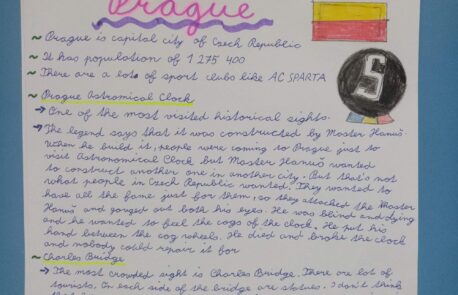 Prague
~ Prague is capital city of Czech Republic
~ It has population of 1 275 400
~ There are a lots of sport clubs like AC SPARTA
~ Prague Astromical Clock
→ One of the most visited historical sights.
→ The legend says that it was constructed by Master Hanuš.
When he build it, people were coming to Prague just to
visit Astronomical Clock but Master Hanuš wanted
to construct another one in another city. But that's not
what people in Czech Republic wanted. They wanted to
have all the fame just for them, so they attacked the Master
Hanuš and gouged out both his eyes. He was blind and dying
and he wanted to feel the cogs of the clock. He put his
hand between the cog wheels. He died and broke the clock
and nobody could repair it for
~ Charles Bridge
→ The most crowded sight is Charles Bridge. There are lot of
tourists. On each side of the bridge are statues. I don't think
S